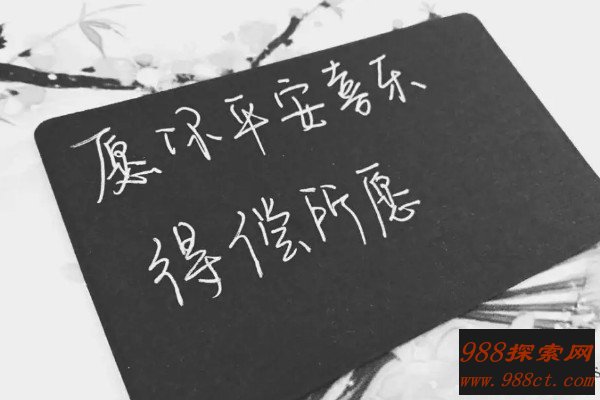 愿你平安喜乐
得偿所愿
988探索网
www.988ct.com